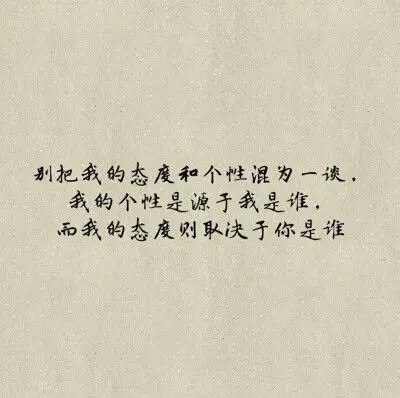 别把我的态度和个性混为一谈，
我的个性是源于我是谁，
而我的态度则取决于你是谁